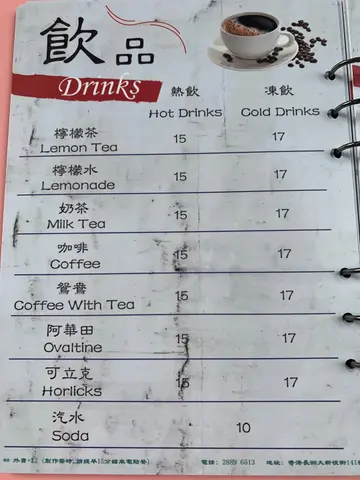 飲品
Drinks
熱飲 凍飲
Hot Drinks Cold Drinks
檸檬茶
Lemon Tea 15 17
檸檬水
Lemonade 15 17
奶茶
Milk Tea 15 17
咖啡
Coffee 15 17
鴛鴦
Coffee With Tea 15 17
阿華田
Ovaltine 15 17
可立克
Horlicks 15 17
汽水
Soda 10
外賣+$2 電話: 2889 6513 地址: 香港長洲大新後街